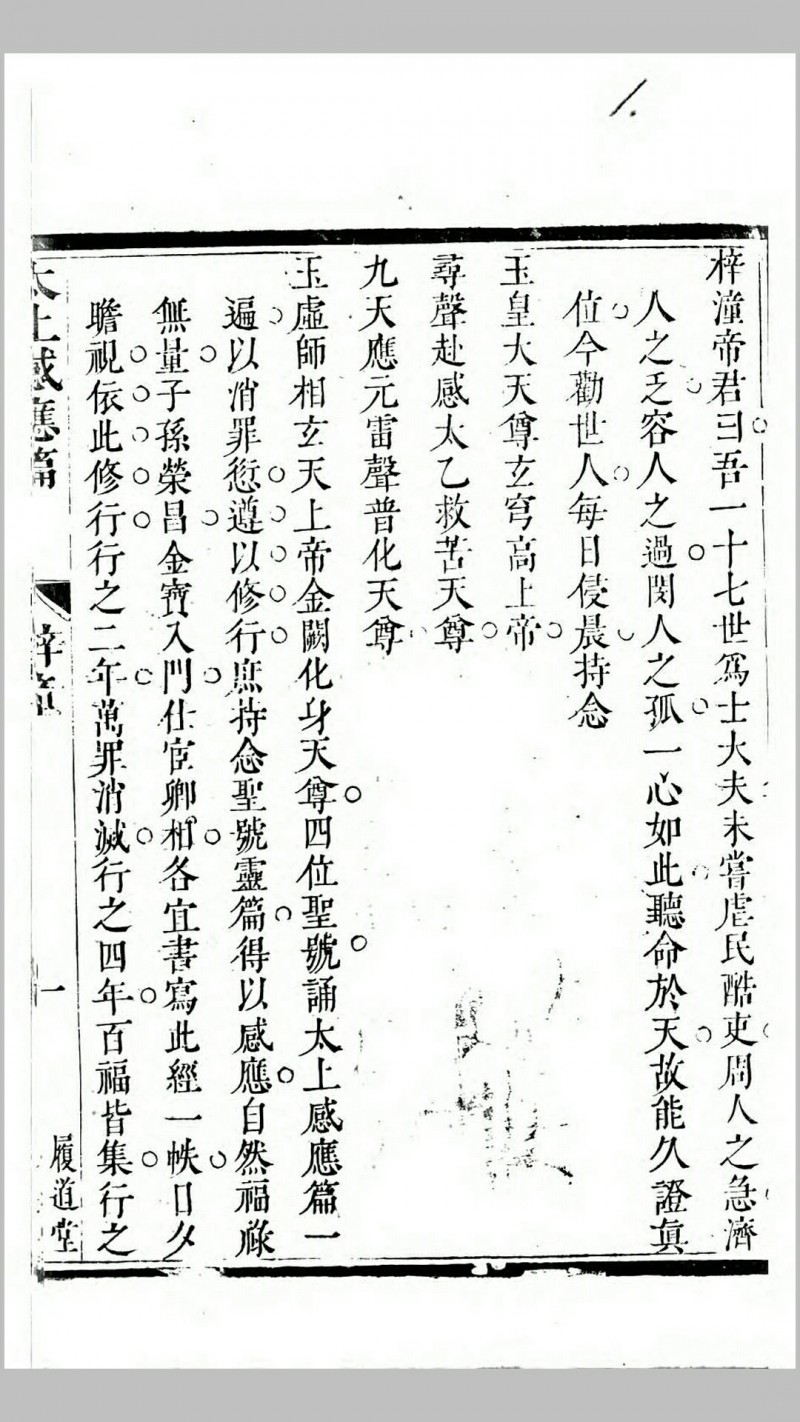 1.
梓潼帝君曰吾一十七世爲士大夫未嘗虐民酷吏周人之急濟
人之乏容人之過閔人之孤一心如此聽命於天故能久證眞
位今勸世人每日侵晨持念
玉皇大天尊玄穹高上帝
尋聲赴感太乙救苦天尊
九天應元雷聲普化天尊
玉虛師相玄天上帝金闕化身天尊四位聖號誦太上感應篇一
遍以消罪愆遵以修行庶持念聖號靈篇得以感應自然福祿
無量子孫榮昌金寶入門仕宦卿相各宜書寫此經一帙日夕
瞻視依此修行行之二年萬罪消滅行之四年百福皆集行之
太上感應篇
一
履道堂